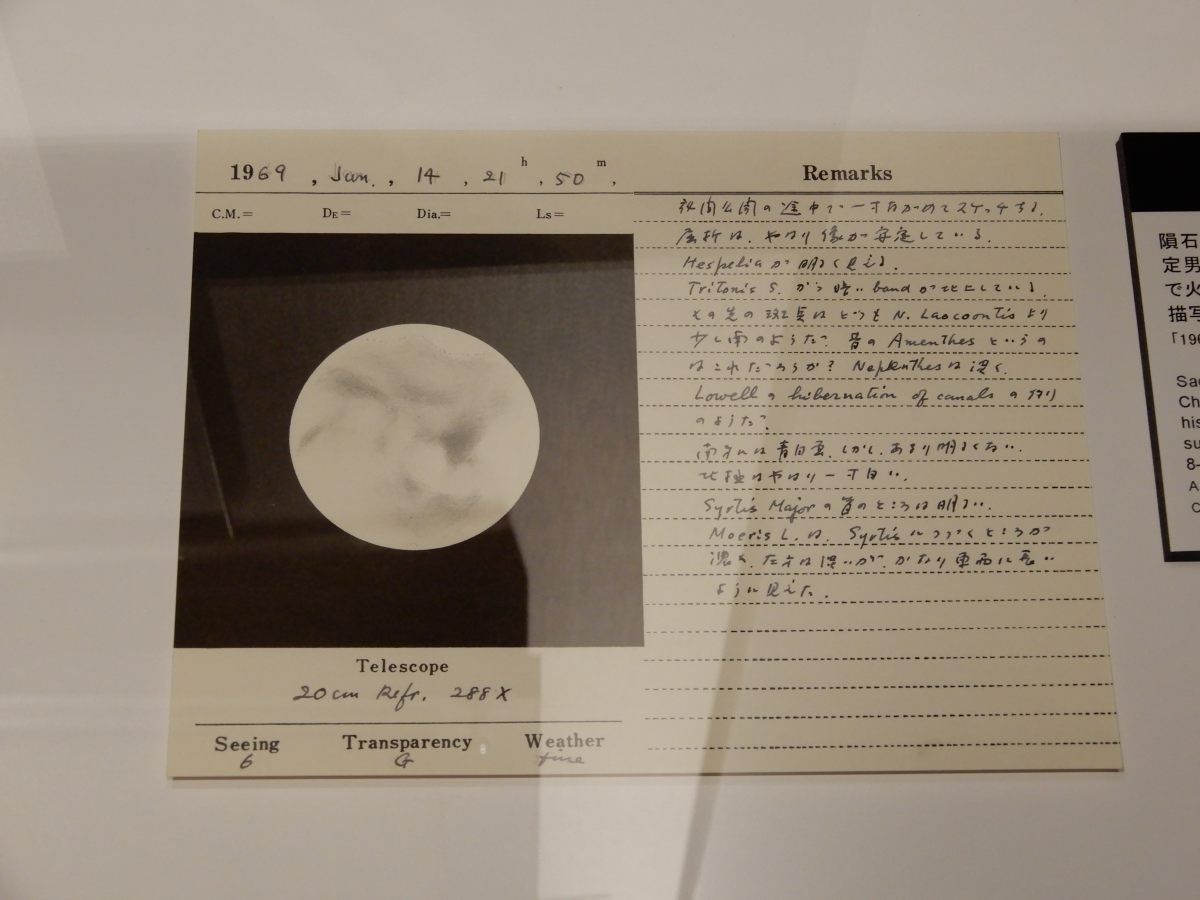 1969 , Jan. , 14 , 21 h , 50 m ,
C.M.= DE= Dia.= Ls=
Telescope
20cm Refr. 288X
Seeing Transparency Weather
6 G fine
Remarks
公開の途中で一寸たしかめてスケッチする.
屈折は、やはり像が安定している.
Hespelia が明るく見える.
Tritonis S. から暗い band が北上している.
その先の斑点はどうも N. Laocoontis より
少し南のようだ? 昔の Amenthes というの
はこれだろうか? Nepenthes は淡く.
Lowell の hibernation of canals の
のようだ.
南方には青白雲. しかし. あまり明るくない.
北極はやはり一寸白い.
Syrtis Major の首のところは明るい.
Moeris L. は. Syrtis につづくところが
濃く. 左方は淡いが. かなり東西に長い
ように見えた.
隕石
定男
で火
描写
「196
Sa
Ch
his
su
8-
A
C